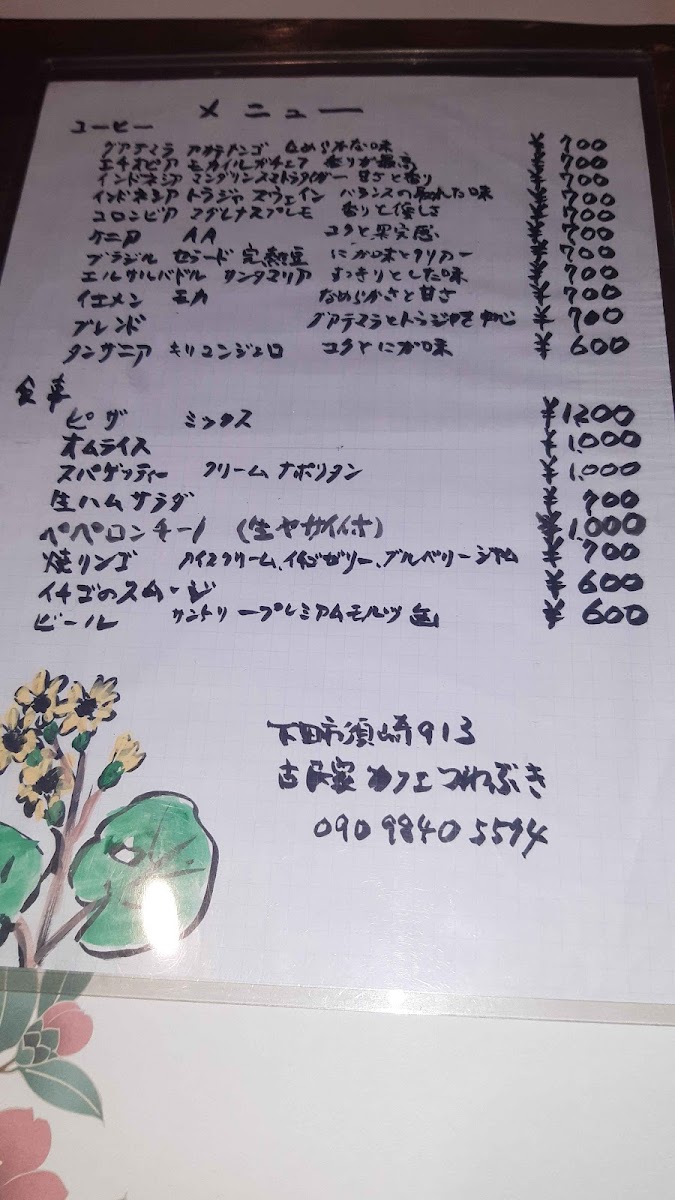 メニュー
コーヒー
グアテマラ アカテナンゴ なめらかな味 ¥700
エチオピア モカイルガチェフ 香りが最高 ¥700
インドネシア マンデリンスマトラタイガー 甘さと香り ¥700
インドネシア トラジャ スウェイン バランスの取れた味 ¥700
コロンビア マグレナスプレモ 香りと優しさ ¥700
ケニア AA コクと果実感 ¥700
ブラジル セラード 完熟豆 にが味とクリアー ¥700
エルサルバドル サンタマリア すっきりとした味 ¥700
イエメン モカ なめらかさと甘さ ¥700
ブレンド グアテマラとトラジャを中心 ¥700
タンザニア キリマンジェロ コクとにが味 ¥600
食事
ピザ ミックス ¥1200
オムライス ¥1,000
スパゲッティー クリーム ナポリタン ¥1,000
生ハムサラダ ¥700
ペペロンチーノ (生ヤサイイカ) ¥1,000
焼リンゴ アイスクリーム、イチゴゼリー、ブルベリージャム ¥700
イチゴのスムージ ¥600
ビール サントリープレミアムモルツ 缶 ¥600
下田市須崎913
古民家カフェつわぶき
090 9840 5594